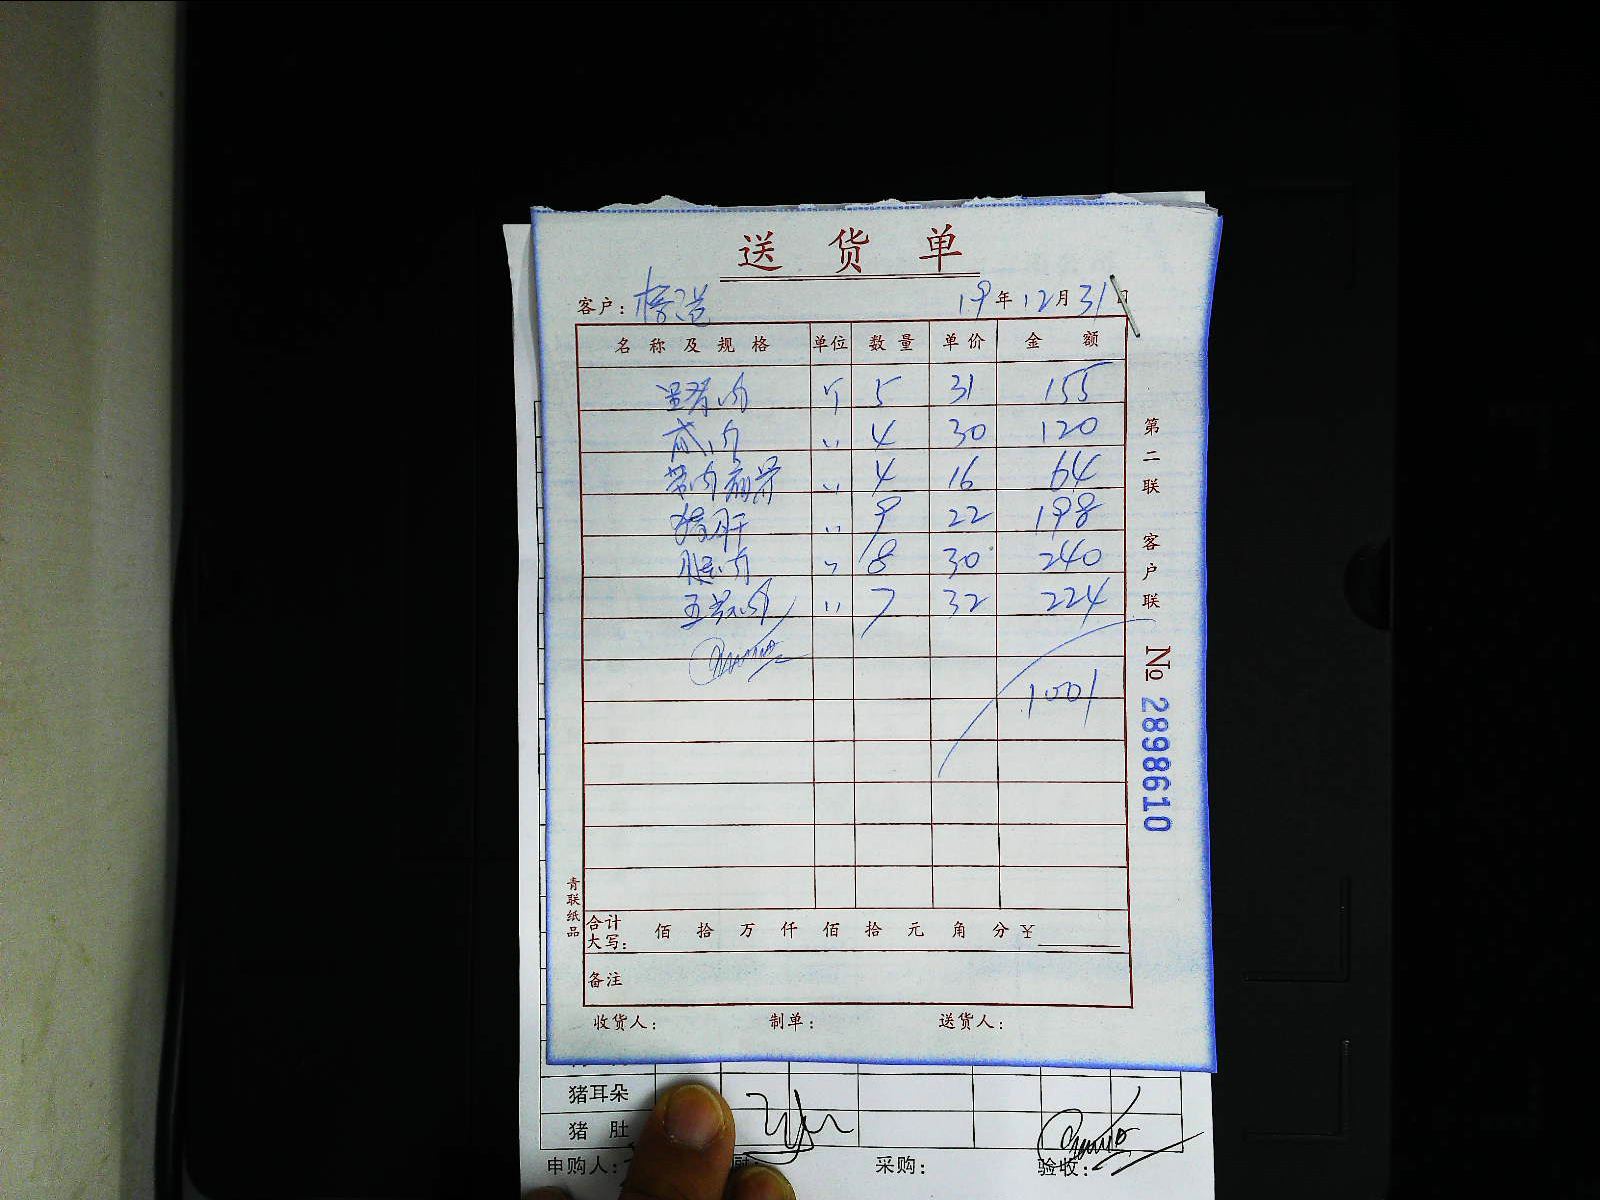 送 货 单
客户: 19年12月31日
名 称 及 规 格 单位 数 量 单 价 金 额
肉 斤 5 31 155
肉 〃 4 30 120
带肉扇骨 〃 4 16 64
猪肝 〃 9 22 198
腿肉 〃 8 30 240
五花肉 〃 7 32 224
1001
合计大写: 佰 拾 万 仟 佰 拾 元 角 分 ¥
备注
收货人: 制单: 送货人:
第二联 客户联
№ 2898610
青联纸品
猪耳朵
猪 肚
申购人: 采购: 验收: